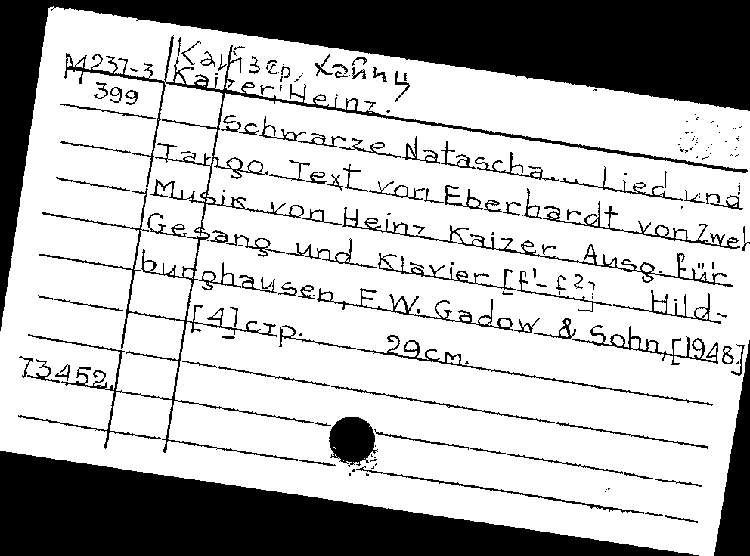 М237-3 Кайзер, Хайнц
399 Kaizer, Heinz.
Schwarze Natascha... Lied und
Tango. Text von Eberhardt von Zweh
Musik von Heinz Kaizer. Ausg. für
Gesang und Klavier [f¹-f².] Hild-
burghausen, F.W. Gadow & Sohn, [1948]
[4] стр. 29 cm.
73452.